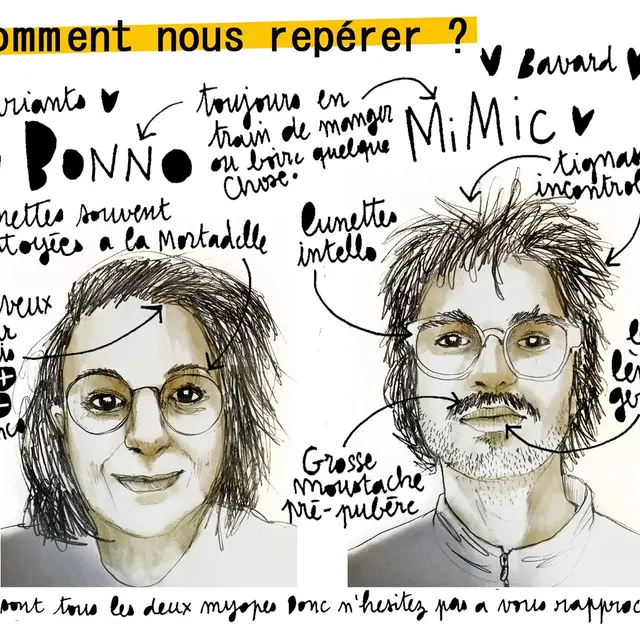 omment nous repérer ?
Bavard
riants
toujours en
train de manger
ou boire quelque
chose.
BONNO
MiMic
tignas
incontrol
nettes souvent
toyées a la Mortadelle
Lunettes
intello
veux
Grosse
moustache
pré-pubère
sont tous les deux myopes Donc n'hesitez pas a vous rapproc